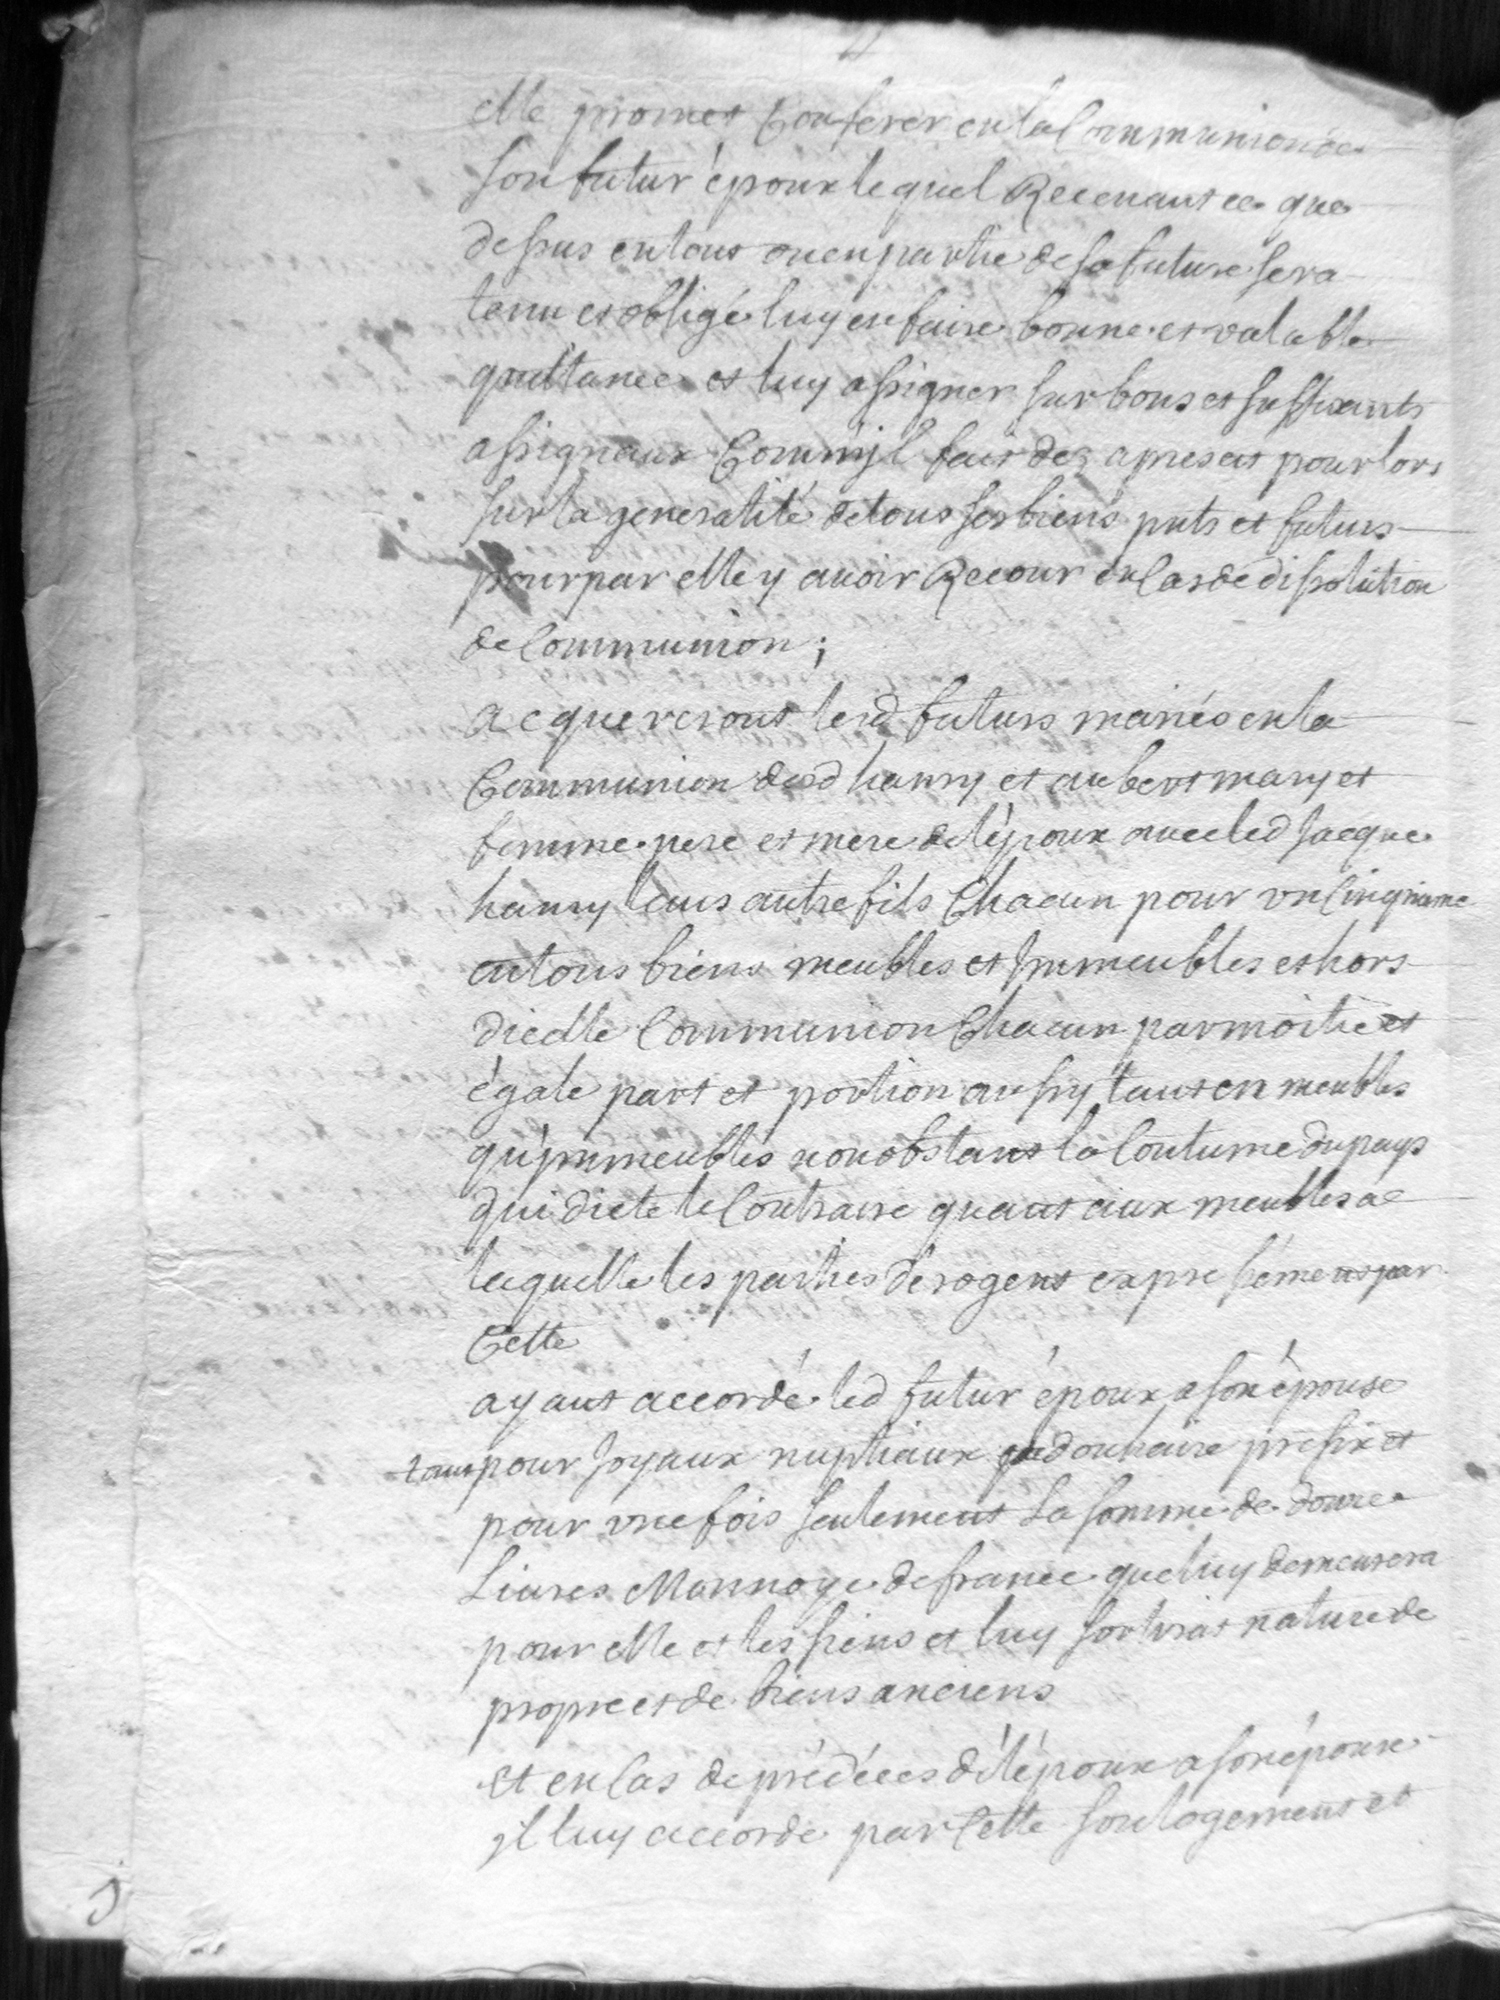 elle promet Conferer en la Communion de
son futur époux lequel Recevant ce que
dessus en tout ou en partie de sa future sera
tenu et obligé luy en faire bonne et valable
quittance et luy assigner sur bons et suffisants
assignaux Comm'jl fait dez apresent pour lors
sur la generalité de tous ses biens pnts et futurs
pour par elle y avoir Recour en Cas de dissolution
de Communion ;
acquereront lesd futurs mariés en la
Communion desd hanry et aubert mary et
femme pere et mere de lépoux avec led Jacque
hanry leurs autre fils Chacun pour un Cinqiême
en tous biens meubles et Immeubles et hors
d'icelle Communion Chacun par moitié et
égale part et portion aussy tant en meubles
qu'jmmeubles nonobstant la Coutume du pays
qui dicte le Contraire quant aux meubles a
laquelle les parties dérogent expressément par
Cette
ayant accordé led futur époux a son épouse
tant pour Joyaux nuptiaux que douhaire prefix et
pour une fois seulement La somme de douze
Livres Monnoye de france que luy demeurera
pour elle et les siens et luy sortirat nature de
propre et de biens anciens
et en Cas de prédéces de lépoux a son épouse
jl luy accorde par Cette son logement et